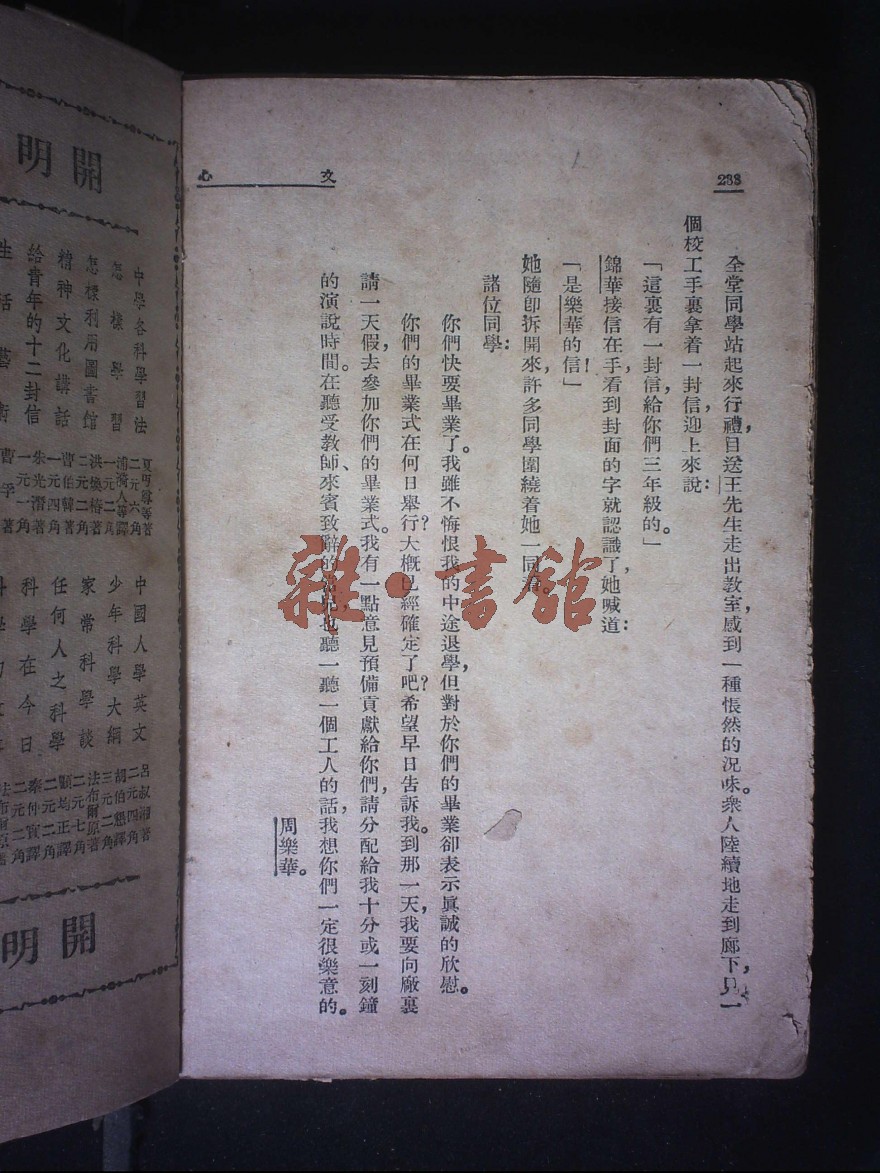 文心
288
全堂同學站起來行禮,目送王先生走出教室,感到一種悵然的況味。衆人陸續地走到廊下,只一
個校工手裏拿着一封信,迎上來說:
「這裏有一封信,給你們三年級的。」
錦華接信在手,看到封面的字就認識了,她喊道:
「是樂華的信!」
她隨卽拆開來,許多同學圍繞着她一同看。
諸位同學:
你們快要畢業了。我雖不悔恨我的中途退學,但對於你們的畢業卻表示眞誠的欣慰。
你們的畢業式在何日舉行?大槪已經確定了吧?希望早日告訴我。到那一天,我要向廠裏
請一天假,去參加你們的畢業式。我有一點意見預備貢獻給你們,請分配給我十分或一刻鐘
的演說時間。在聽受教師、來賓致辭的當兒,也聽一聽一個工人的話,我想你們一定很樂意的。
周樂華。
雜·書館
開明
中學各科學習法
夏丏尊等著
二元六角
怎樣學習
一元二角
怎樣利用圖書館
洪煥椿著
二元二角
精神文化講話
曹伯韓著
一元四角
給青年的十二封信
朱光潛著
一元一角
生活藝術
中國人學英文
呂叔湘著
二元四角
少年科學大綱
胡伯懇譯
三元二角
家常科學談
法布爾原著
二元七角
任何人之科學
顧均正譯
二元二角
科學在今日
秦仲實譯
二元二角
開明